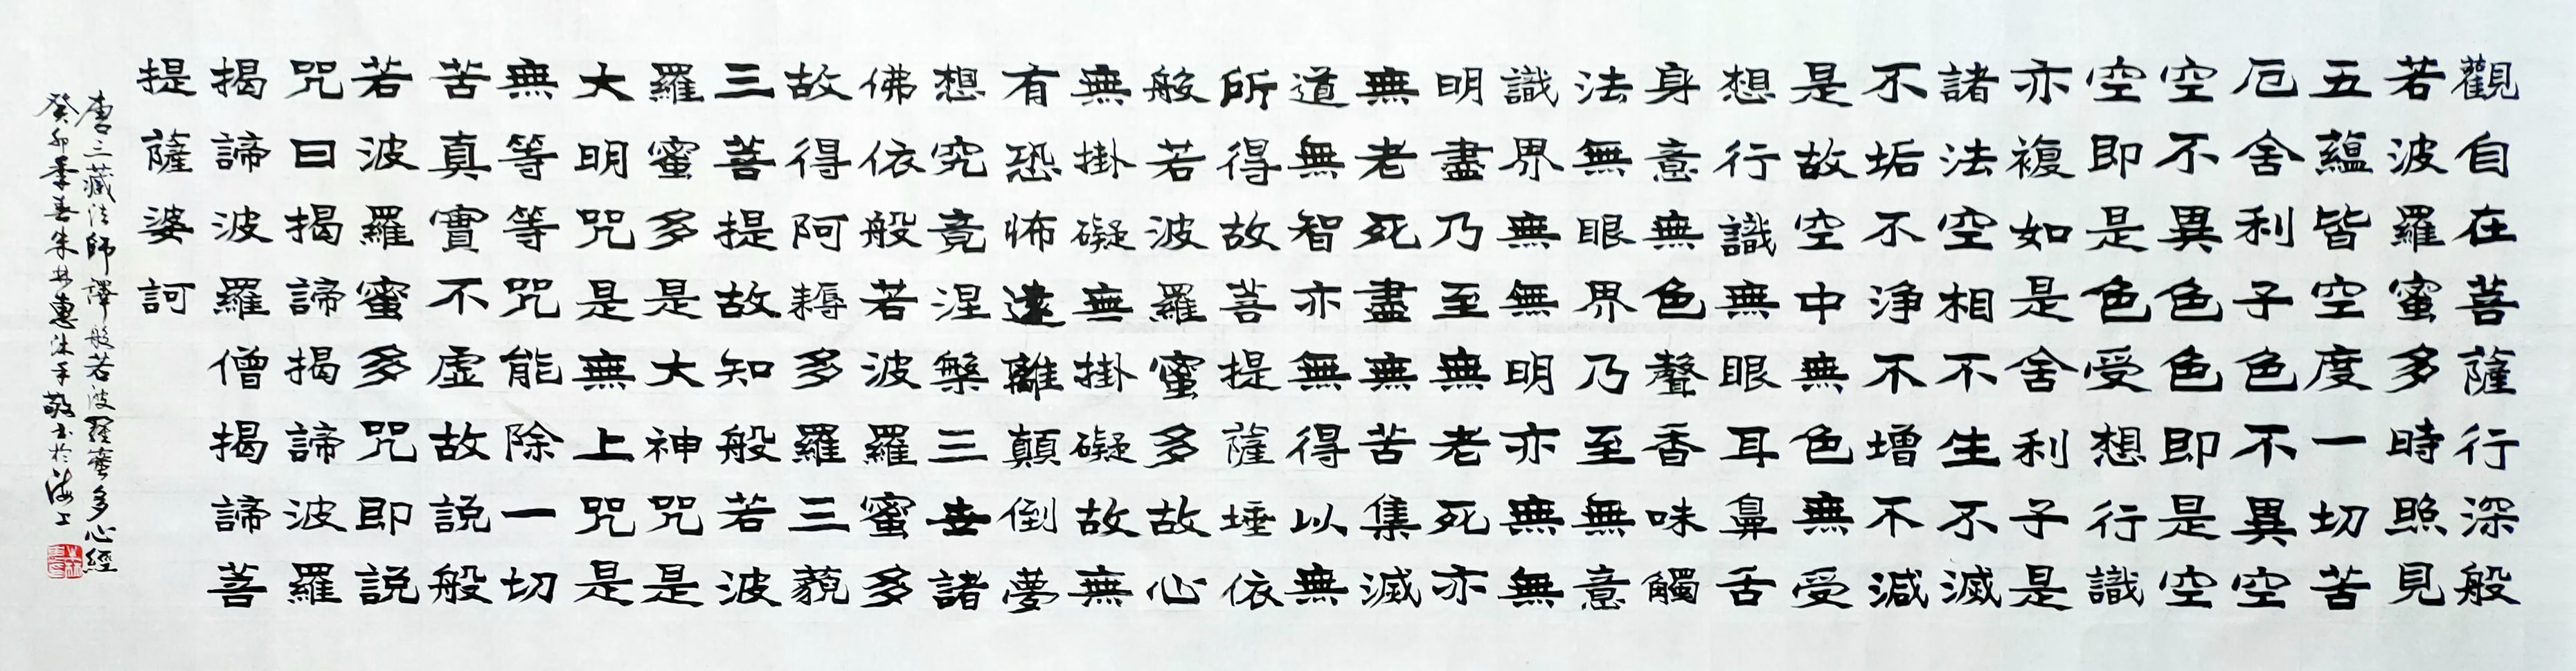 觀自在菩薩行深般
若波羅蜜多時照見
五蘊皆空度一切苦
厄舍利子色不異空
空不異色色即是空
空即是色受想行識
亦複如是舍利子是
諸法空相不生不滅
不垢不淨不增不減
是故空中無色無受
想行識無眼耳鼻舌
身意無色聲香味觸
法無眼界乃至無意
識界無無明亦無無
明盡乃至無老死亦
無老死盡無苦集滅
道無智亦無得以無
所得故菩提薩埵依
般若波羅蜜多故心
無掛礙無掛礙故無
有恐怖遠離顛倒夢
想究竟涅槃三世諸
佛依般若波羅蜜多
故得阿耨多羅三藐
三菩提故知般若波
羅蜜多是大神咒是
大明咒是無上咒是
無等等咒能除一切
苦真實不虛故說般
若波羅蜜多咒即說
咒曰揭諦揭諦波羅
揭諦波羅僧揭諦菩
提薩婆訶
唐三藏法師譯般若波羅蜜多心經
癸卯季春朱惠沐手敬书於海上